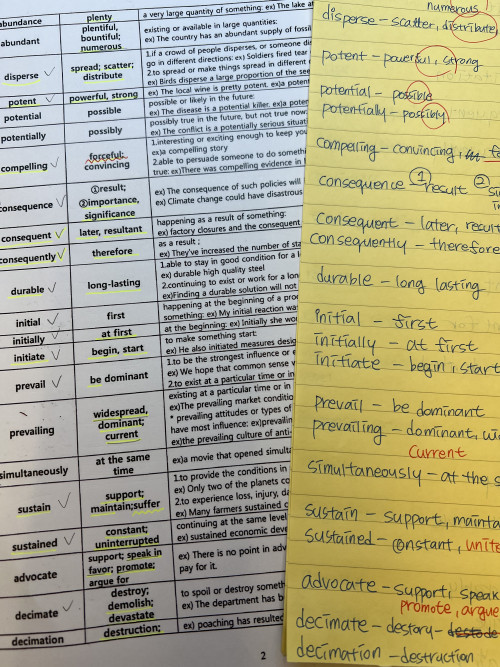 abundance plenty a very large quantity of something: ex) The lake a
abundant plentiful, bountiful; numerous existing or available in large quantities:
ex) The country has an abundant supply of fossi
disperse spread; scatter; distribute 1.if a crowd of people disperses, or someone di
go in different directions: ex) Soldiers fired tear
2.to spread or make things spread in different
ex) Birds disperse a large proportion of the see
potent powerful, strong ex) The local wine is pretty potent. ex)a potent
potential possible possible or likely in the future:
ex) The disease is a potential killer. ex)a potent
potentially possibly possibly true in the future, but not true now:
ex) The conflict is a potentially serious situat
compelling forceful; convincing 1.interesting or exciting enough to keep you
ex)a compelling story
2.able to persuade someone to do somethi
true: ex)There was compelling evidence in
consequence ①result; ②importance, significance ex) The consequence of such policies will
ex) Climate change could have disastrous
consequent later, resultant happening as a result of something:
ex) factory closures and the consequent
consequently therefore as a result ;
ex) They've increased the number of sta
durable long-lasting 1.able to stay in good condition for a l
ex) durable high quality steel
2.continuing to exist or work for a long
ex)Finding a durable solution will not
initial first happening at the beginning of a pro
something: ex) My initial reaction wa
initially at first at the beginning: ex) Initially she wo
initiate begin, start to make something start:
ex) He also initiated measures desig
prevail be dominant 1.to be the strongest influence or e
ex) We hope that common sense
2.to exist at a particular time or in
prevailing widespread, dominant; current existing at a particular time or in
ex)The prevailing market conditio
* prevailing attitudes or types of
have most influence: ex)prevailin
ex)the prevailing culture of anti-
simultaneously at the same time ex)a movie that opened simulta
sustain support; maintain;suffer 1.to provide the conditions in
ex) Only two of the planets co
2.to experience loss, injury, da
ex) Many farmers sustained c
sustained constant; uninterrupted continuing at the same level
ex) sustained economic deve
advocate support; speak in favor; promote; argue for ex) There is no point in adv
pay for it.
decimate destroy; demolish; devastate to spoil or destroy someth
ex) The department has b
decimation destruction; ex) poaching has resulted
2
numerous
disperse – scatter, distribute
potent – powerful, strong
potential – possible
potentially – possibly
compelling – convincing,
consequence ① result ②
consequent – later, result
consequently – therefore
durable – long lasting
initial – first
initially – at first
initiate – begin, start
prevail – be dominant
prevailing – dominant, wi
current
simultaneously – at the s
sustain – support, mainta
sustained – constant, unite
advocate – support, speak
promote, argue
decimate – destory – destode
decimation – destruction